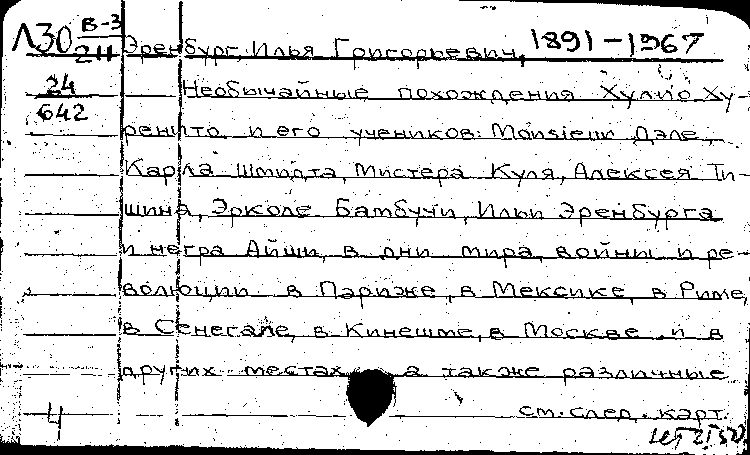 Л30 В-3
24
Эренбург, Илья Григорьевич, 1891-1967
24
642
Необычайные похождения Хулио Ху-
ренито и его учеников: Monsieur Дэле,
Карла Шмидта, Мистера Куля, Алексея Ти-
шина, Эрколе Бамбучи, Ильи Эренбурга
и негра Айши, в дни мира, войны и ре-
волюции в Париже, в Мексике, в Риме,
в Сенегале, в Кинешме, в Москве и в
других местах, а также различные
см. след. карт.
4